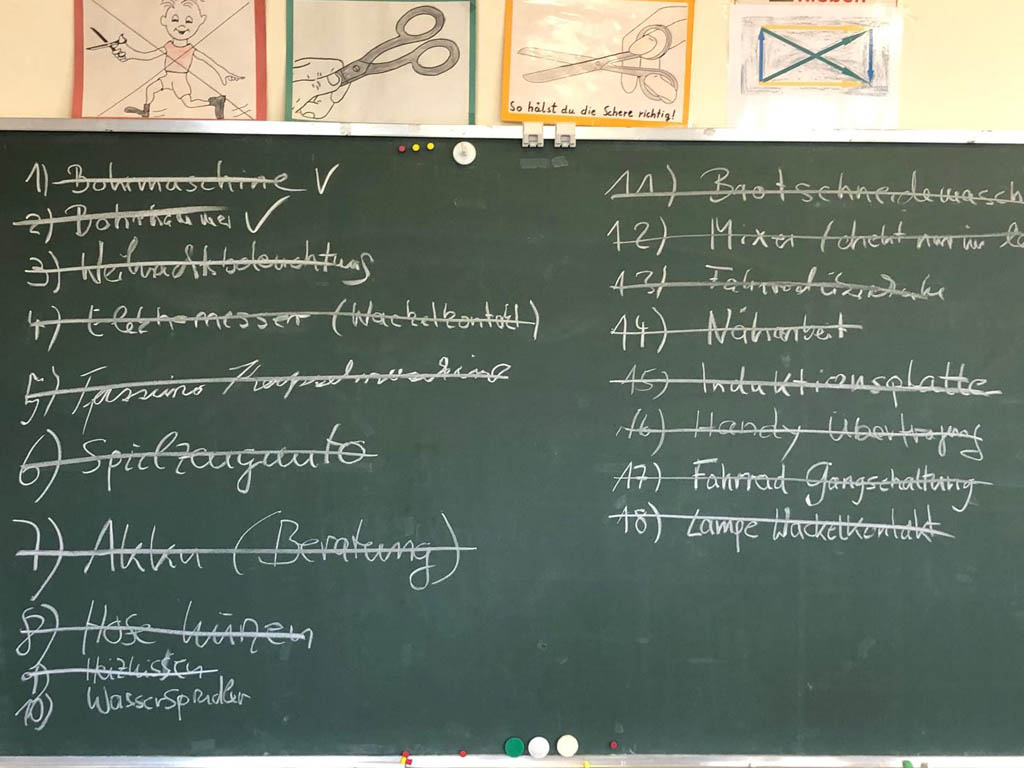 kleben
So hälst du die Schere richtig!
1) Bohrmaschine √
2) Bohrhammer √
3) Weihnachtsbeleuchtung
4) Elektromesser (Wackelkontakt)
5) Tassimo Kapselmaschine
6) Spielzeugauto
7) Akku (Beratung)
8) Hose kürzen
9) Heizkissen
10) Wassersprudler
11) Brotschneidemasch
12) Mixer (dreht nur im
13)
14) Näharbeit
15) Induktionsplatte
16) Handy Übertragung
17) Fahrrad Gangschaltung
18) Lampe Wackelkontakt